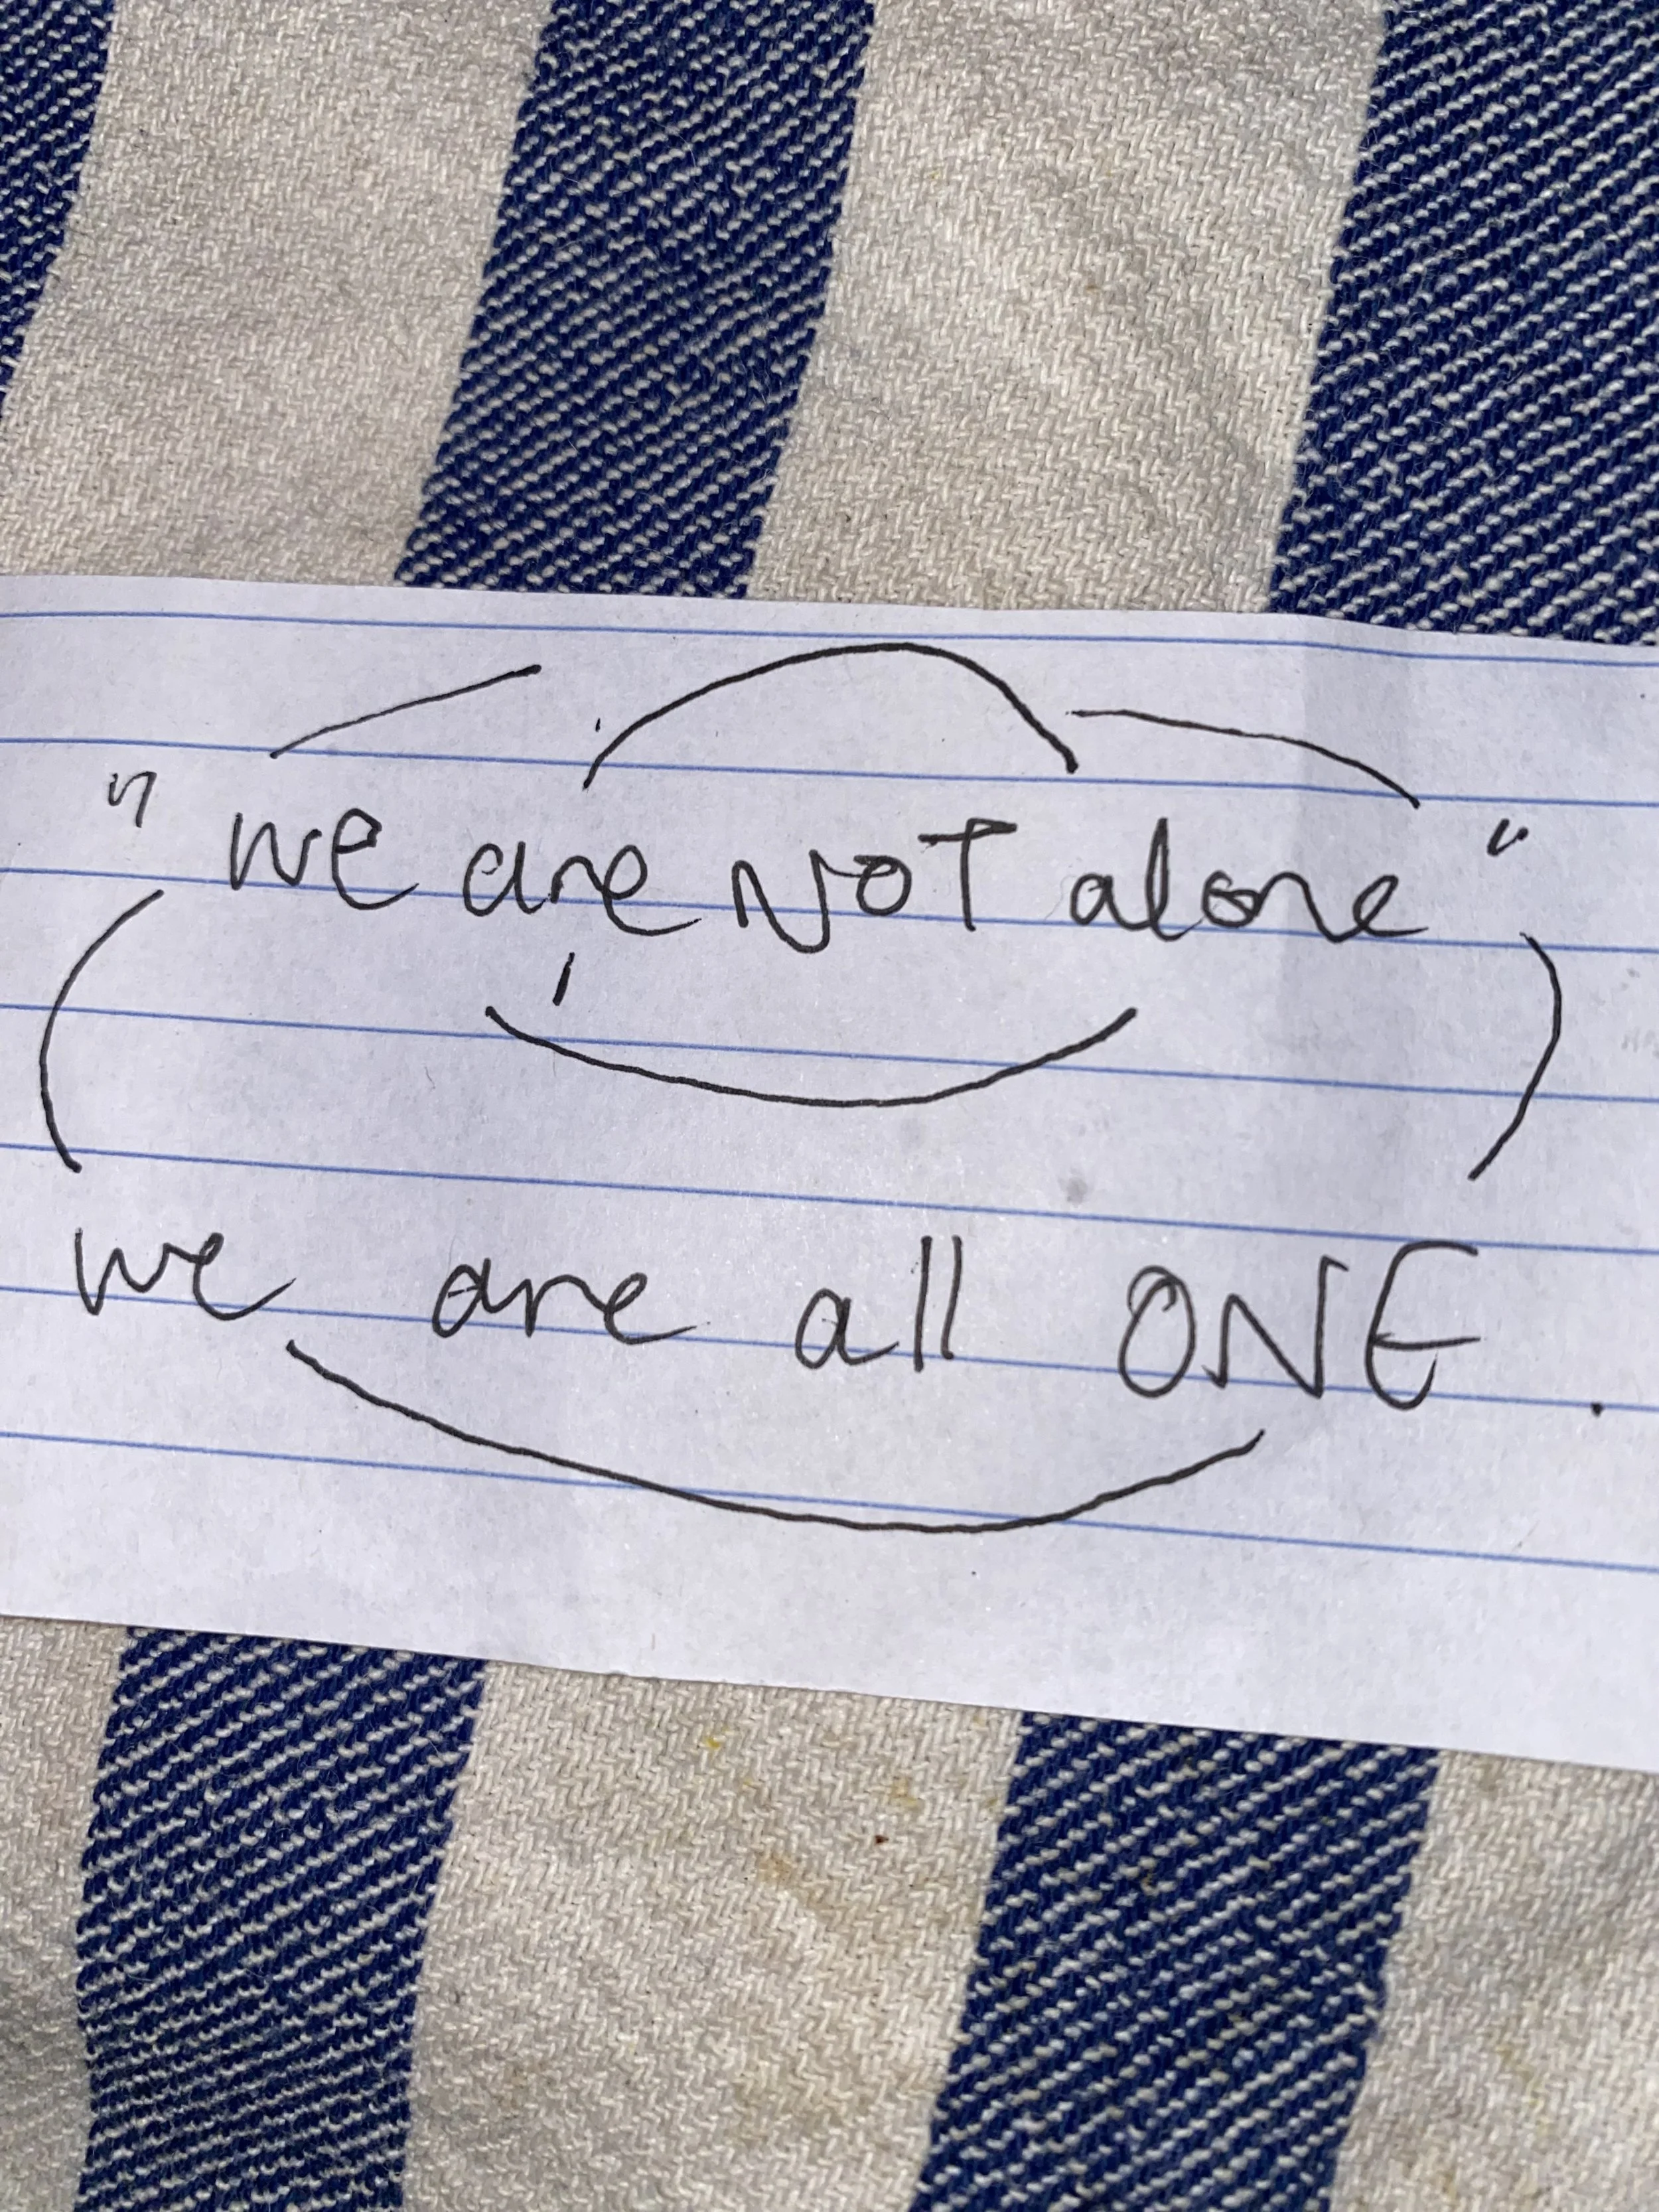 "we are NOT alone"
we are all ONE.